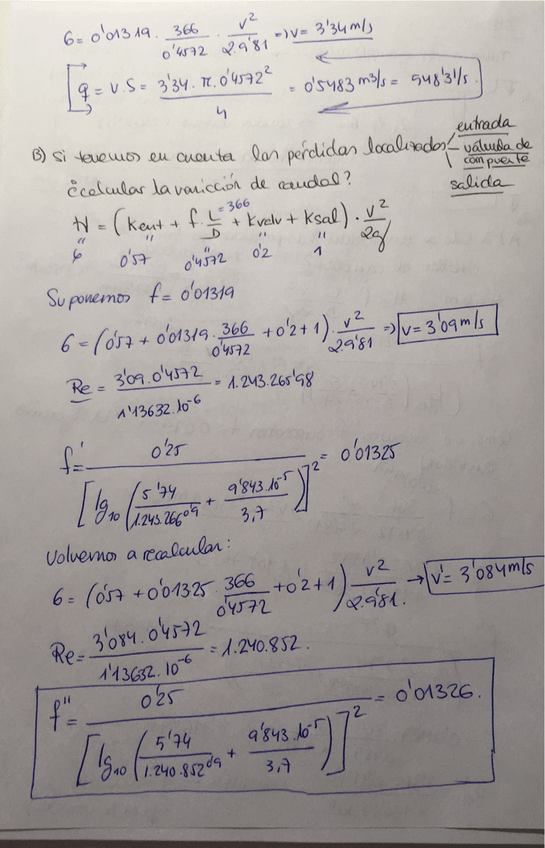 6 = 0'01319 · 366/0'4572 · v²/2·9'81 => v = 3'34 m/s
q = v·S = 3'34 · π · 0'4572²/4 = 0'5483 m³/s = 548'3 l/s
B) Si tenemos en cuenta las pérdidas localizadas entrada
válvula de compuerta
salida
¿calcular la varición de caudal?
H = (Kent + f · L/D + Kvalv + Ksal) · v²/2g
= 366
6 0'57 0'4572 0'2 1
Suponemos f = 0'01319
6 = (0'57 + 0'01319 · 366/0'4572 + 0'2 + 1) · v²/2·9'81 => v = 3'09 m/s
Re = 3'09 · 0'4572/1'13632·10⁻⁶ = 1.243.265'98
f' = 0'25/[lg₁₀ (5'74/1.243.266⁰'⁹ + 9'843·10⁻⁵/3,7)]² = 0'01325
Volvemos a recalcular:
6 = (0'57 + 0'01325 · 366/0'4572 + 0'2 + 1) v²/2·9'81. → v' = 3'084 m/s
Re = 3'084 · 0'4572/1'13632·10⁻⁶ = 1.240.852.
f'' = 0'25/[lg₁₀ (5'74/1.240.852⁰'⁹ + 9'843·10⁻⁵/3,7)]² = 0'01326.